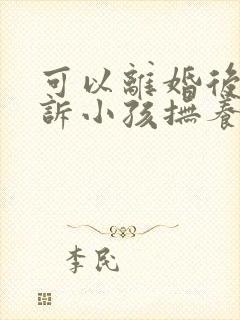 可以離婚後
訴小孩撫養
李民